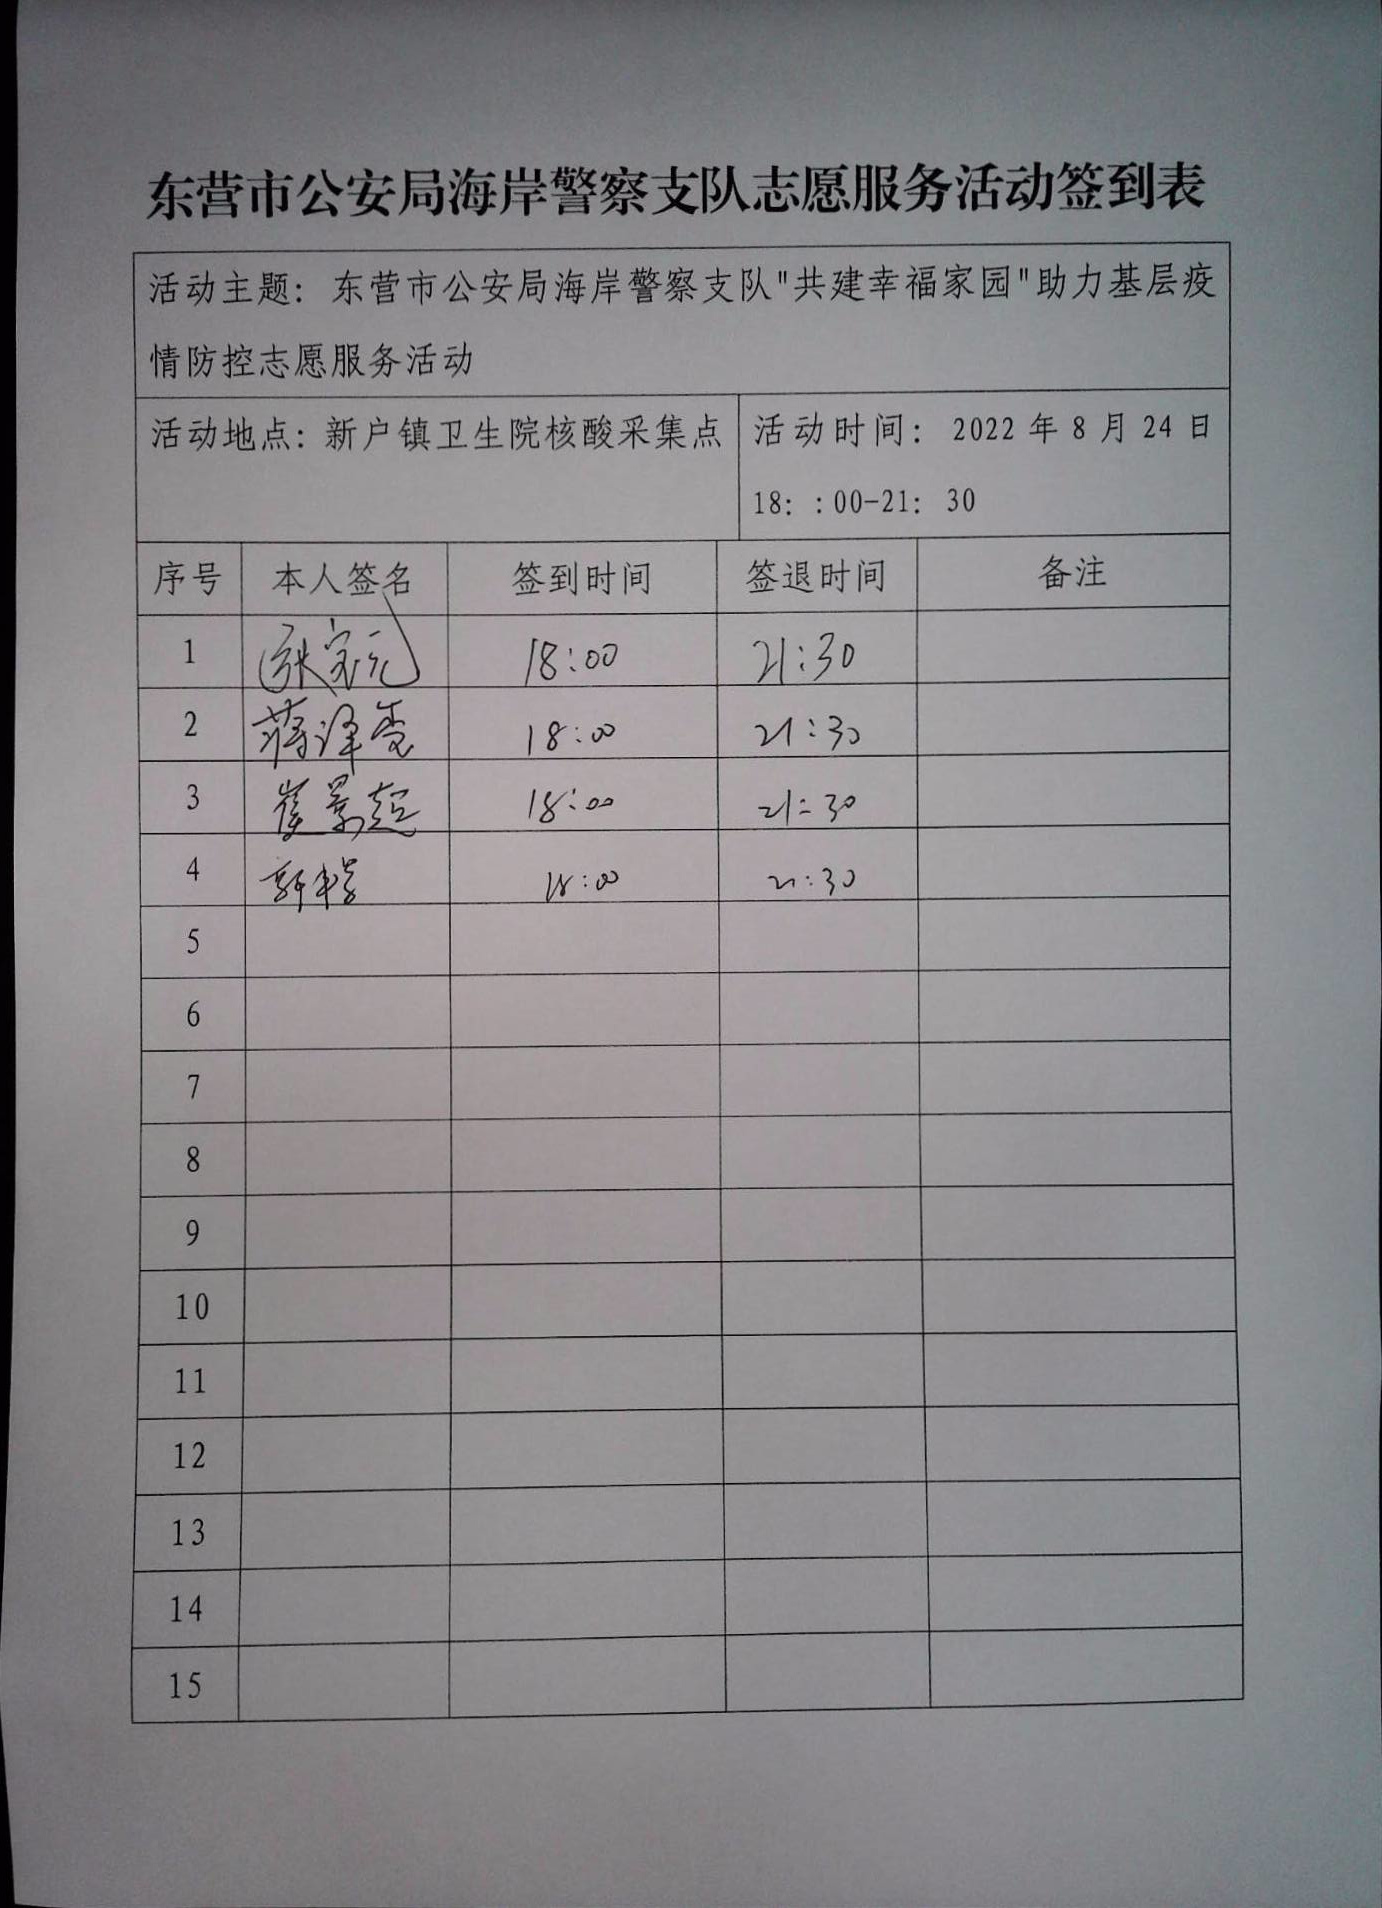 东营市公安局海岸警察支队志愿服务活动签到表
活动主题：东营市公安局海岸警察支队"共建幸福家园"助力基层疫
情防控志愿服务活动
活动地点：新户镇卫生院核酸采集点 活动时间：2022 年 8 月 24 日
18：:00-21：30
序号 本人签名 签到时间 签退时间 备注
1 张宝元 18:00 21:30
2 蒋泽 18:00 21:30
3 崔景超 18:00 21:30
4 郭 18:00 21:30
5
6
7
8
9
10
11
12
13
14
15